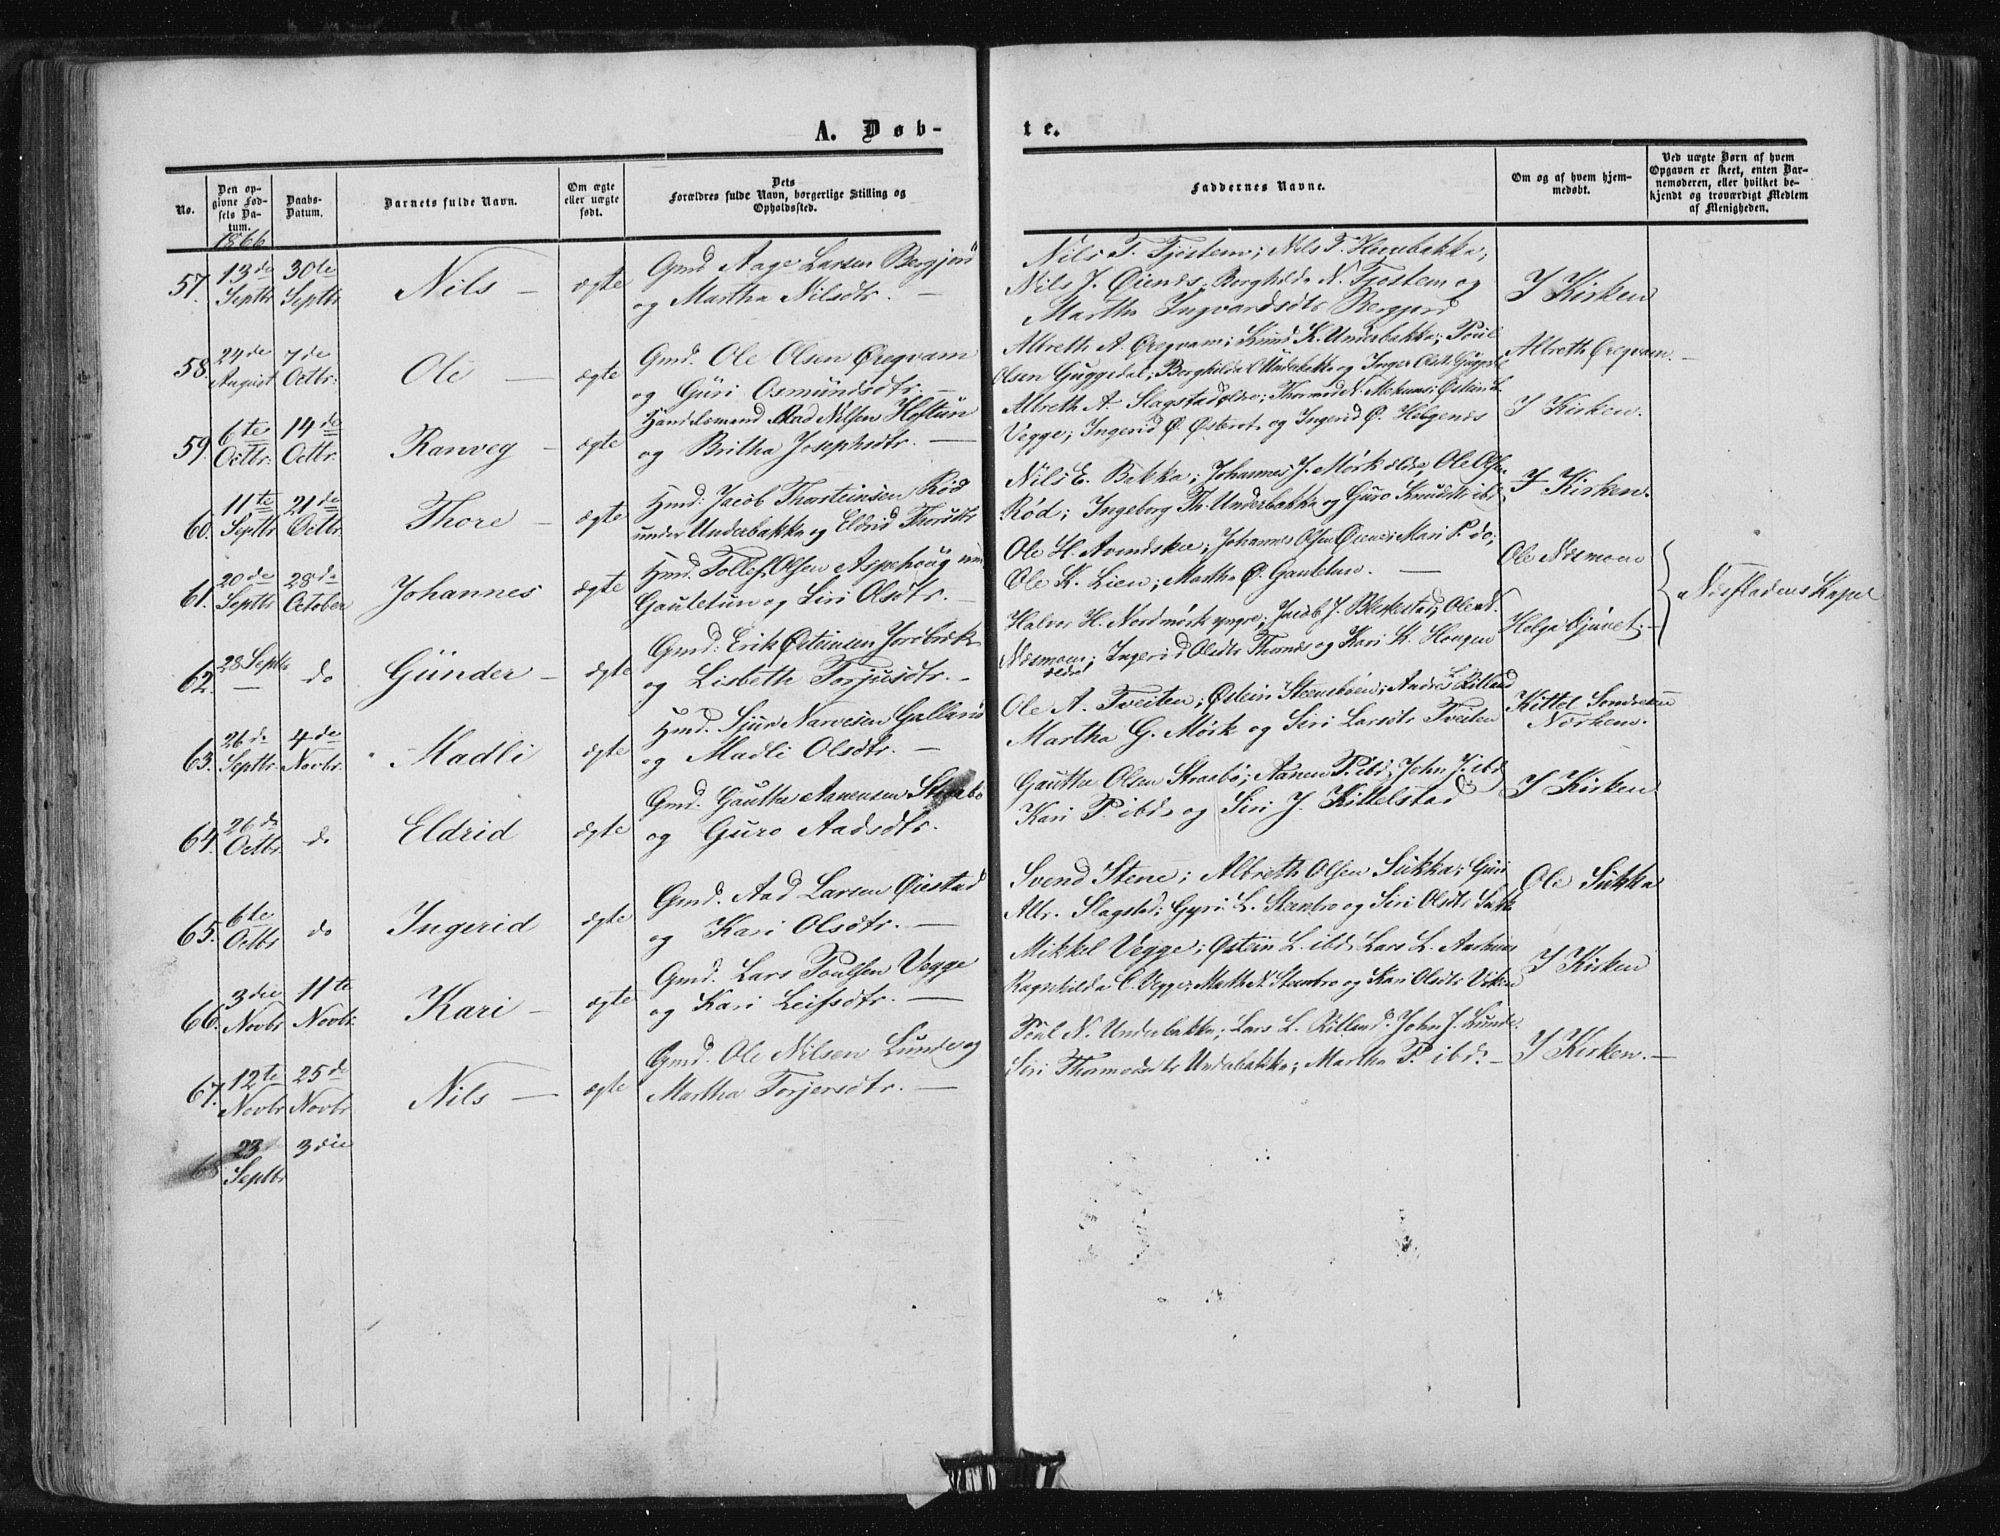 A. Døb-
te.
No.
Den opgivne Fødsels Datum.
Daabs-Datum.
Barnets fulde Navn.
Om ægte eller uægte født.
Dets Forældres fulde Navn, borgerlige Stilling og Opholdssted.
Faddernes Navne.
Om og af hvem hjemmedøbt.
Ved uægte Børn af hvem Opgaven er skeet, enten Barnemoderen, eller hvilket bekjendt og troværdigt Medlem af Menigheden.
1866
57. 13de Septbr 30te Septbr Nils — ægte
Gmd Aage Larsen Bergjord
og Martha Nilsdtr. —
Nils T. Tjostem; Nils T. Humbakka;
Nils J. Øiends; Borghilda N. Tjostem og
Martha Ingvardsdtr Bergjord
I Kirken
58. 24de August 7de Octbr: Ole — ægte
Gmd. Ole Olsen Øregvam
og Güri Osmundsdtr. —
Albreth A. Øregvam; Knud K. Underbakka; Poul
Olsen Guggedal; Borghilda Underbakka og Inger Olsdtr Guggedal
Albreth Øregvam. —
59. 6te Octbr. 14de Octbr. Ranveg — ægte
Handelsmand Aad Nilsen Hoftun
og Britha Josephsdtr. —
Albreth A. Slagstad ældre; Thormod N. Mokunis; Østein L.
Vegge; Ingerid Ø. Østerot og Ingerid Ø. Helgenes
I Kirken.
60. 11te Septbr 21de Octbr. Thore — ægte
Hmd. Jacob Thorsteinsen Rød
under Underbakka og Eldrid Thorsdtr
Nils E. Bakka; Johannes J. Mørk ældre, Ole Olsen
Rød; Ingeborg Th. Underbakka og Guro Knudsdtr ibd
I Kirken.
61. 20de Septbr 28de October Johannes ægte
Hmd. Tollef Olsen Aspehoug
Gauletun og Siri Olsdtr. —
Ole H. Avendsku; Johannes Olsen Øiene; Mari P. do;
Ole K. Lien; Martha Ø. Gauletun. —
Ole Næsmoen
Næsfladens Kapel
62. 28 Septbr — do Günder — ægte
Gmd. Erik Østeinsen Jordbrek
og Lisbeth Torjusdtr. —
Halvor H. Nordmørk yngre; Jacob J. Bleskestad; Ole N.
Næsmoen ældre; Ingerid Olsdtr Thornes og Kari K. Hougen
Helga Djuvet. —
63. 26de Septbr. 4de Novbr. Madli ægte
Hmd. Sjur Narvesen Galland
og Madli Olsdtr. —
Ole A. Tveiten; Østein Steensboen; Anders L. Rilland
Martha G. Mørk og Siri Larsdtr Tveiten
Kittel Sondresen
Norhem.
64. 26de Octbr. do Eldrid ægte
Gmd. Gauthe Aanensen Straabø
og Guro Aadsdtr.
Gauthe Olsen Straabø; Aanen P. ibd; John J. ibd
Kari P. ibd. og Siri J. Kittelstad
I Kirken
65. 6te Octbr do Ingerid ægte
Gmd. Aad Larsen Øiestad
og Kari Olsdtr. —
Svend Stene; Albreth Olsen Sukka; Guri
Albr. Slagstad; Gyri L. Steenbro og Siri Olsdtr Sukka
Ole Sukka
66. 3die Novbr 11te Novbr. Kari — ægte
Gmd. Lars Poulsen Vegge
og Kari Leifsdtr. —
Mikkel Vegge; Østein L. ibd. Lars L. Aarhuus
Ragnhilda C. Vegge; Marth N. Steenbro og Kari Olsdtr Viken
I Kirken
67. 12te Novbr 25de Novbr. Nils — ægte
Gmd. Ole Nilsen Lunde og
Martha Torjersdtr. —
Poul N. Underbakka; Lars L. Rilland. John J. Lunde.
Siri Thormodsdtr Underbakka; Martha P. ibd: —
I Kirken. —
68 23 Septbr 3die